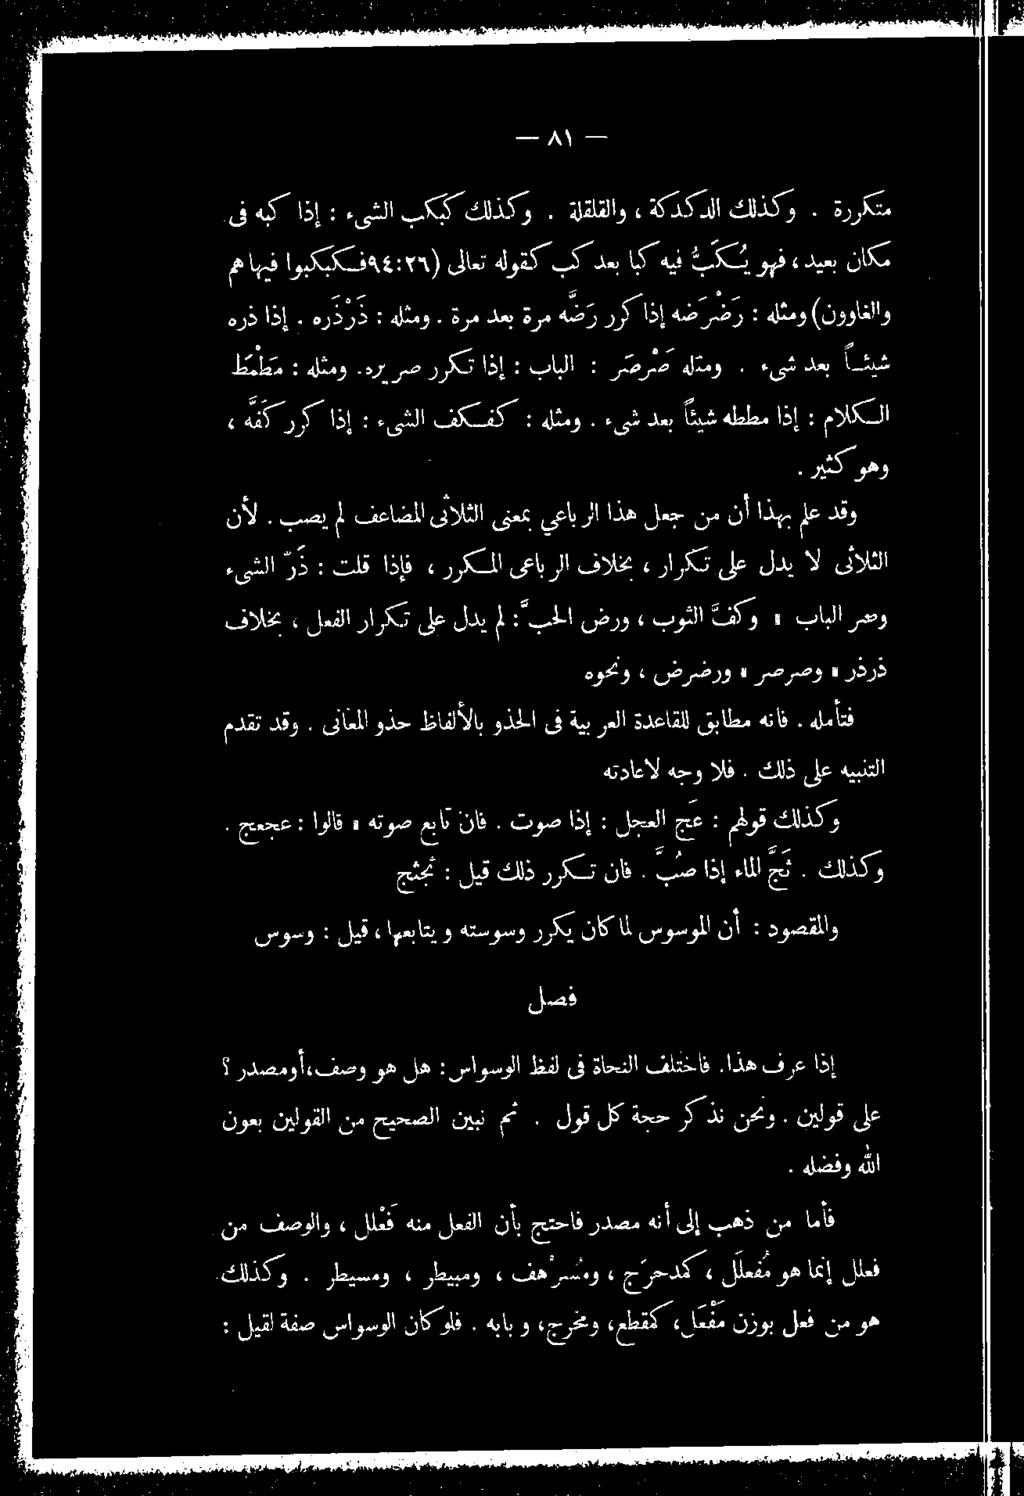 — ٨١ —
متكررة . وكذلك الدكدكة ، والقلقلة . وكذلك كبكب الشىء : إذا كبه فى
مكان بعيد ، فهو يُكَبُّ فيه كبا بعد كب كقوله تعالى (٢٦:٩٤ فكبكبوا فيها هم
والغاوون) ومثله : رَضْرَضه إذا كرر رَضَّه مرة بعد مرة . ومثله : ذَرْذَره . إذا ذره
شيئاً بعد شىء . ومثله صَرْصَر : الباب : إذا تكرر صريره . ومثله : مَطْمَطَ
الكلام : إذا مططه شيئاً بعد شىء . ومثله : كفكف الشىء : إذا كرر كَفَّه ،
وهو كثير .
وقد علم بهذا أن من جعل هذا الرباعي بمعنى الثلاثى المضاعف لم يصب . لأن
الثلاثى لا يدل على تكرار ، بخلاف الرباعى المكرر ، فإذا قلت : ذَرَّ الشىء
وصر الباب ، وكفَّ الثوب ، ورض الحبَّ : لم يدل على تكرار الفعل ، بخلاف
ذرذر ، وصرصر ، ورضرض ، ونحوه
فتأمله . فانه مطابق للقاعدة العربية فى الحذو بالألفاظ حذو المعانى . وقد تقدم
التنبيه على ذلك . فلا وجه لاعادته
وكذلك قولهم : عَج العجل : إذا صوت . فان تابع صوته ، قالوا : عجعج .
وكذلك . ثَجَّ الماء إذا صُبَّ . فان تكرر ذلك قيل : ثجثج
والمقصود : أن الموسوس لما كان يكرر وسوسته ويتابعها ، قيل : وسوس
فصل
إذا عرف هذا . فاختلف النحاة فى لفظ الوسواس : هل هو وصف ، أو مصدر ؟
على قولين . ونحن نذكر حجة كل قول . ثم نبين الصحيح من القولين بعون
الله وفضله .
فأما من ذهب إلى أنه مصدر فاحتج بأن الفعل منه فَعْلل ، والوصف من
فعلل إنما هو مُفَعلَل ، كمدحرَج ، ومُسرْهف ، ومبيطر ، ومسيطر . وكذلك
هو من فعل بوزن مَفْعَل ، كمقطع ، ومخرج ، وبابه . فلو كان الوسواس صفة لقيل :